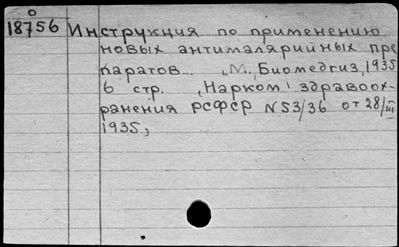 о
18756 Инструкция по применению
новых антималярийных пре
паратов... „М., Биомедгиз, 1935
6 стр. „Нарком' здравоох-
ранения РСФСР N53/36 от 28/III
1935,